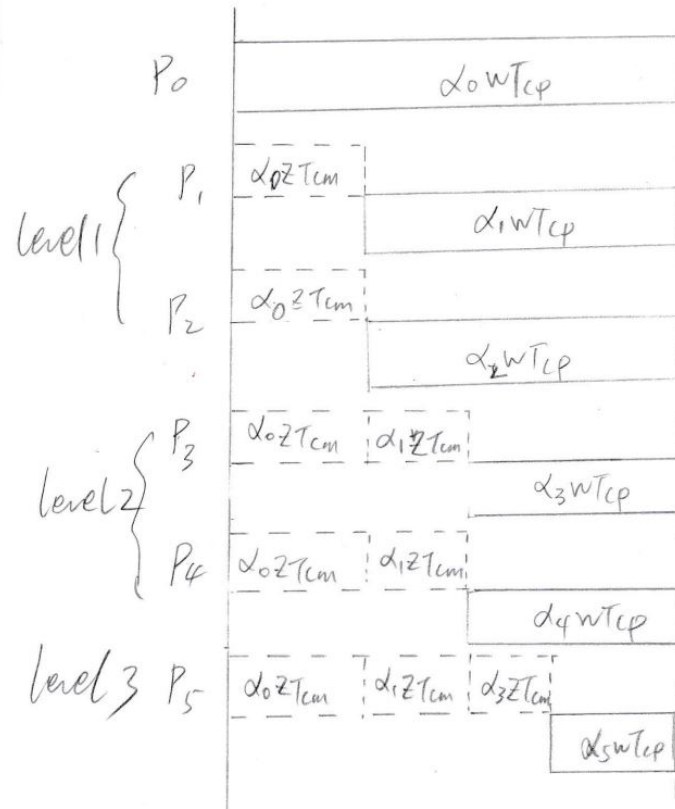 P₀ α₀wTcp
P₁ α₀zTcm
level 1 α₁wTcp
P₂ α₀zTcm
α₂wTcp
P₃ α₀zTcm α₁zTcm
level 2 α₃wTcp
P₄ α₀zTcm α₁zTcm
α₄wTcp
level 3 P₅ α₀zTcm α₁zTcm α₃zTcm
α₅wTcp